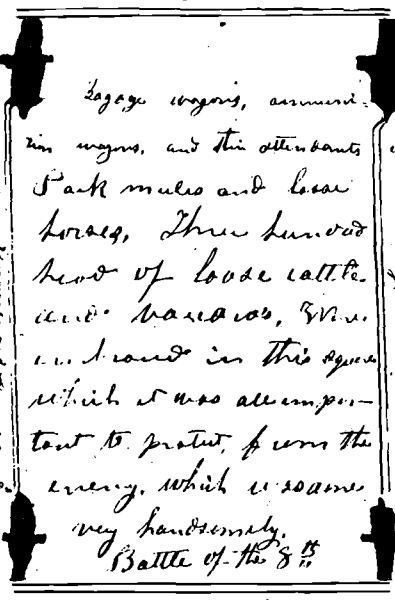 bagage wagons, ammuni-
tion wagons, and their attendants
Pack mules and loose
horses, Three hundred
head of loose cattle
and vacaros, were
in this square
which it was all impor-
tant to protect, from the
enemy, which was done
very handsomely.
Battle of the 8th